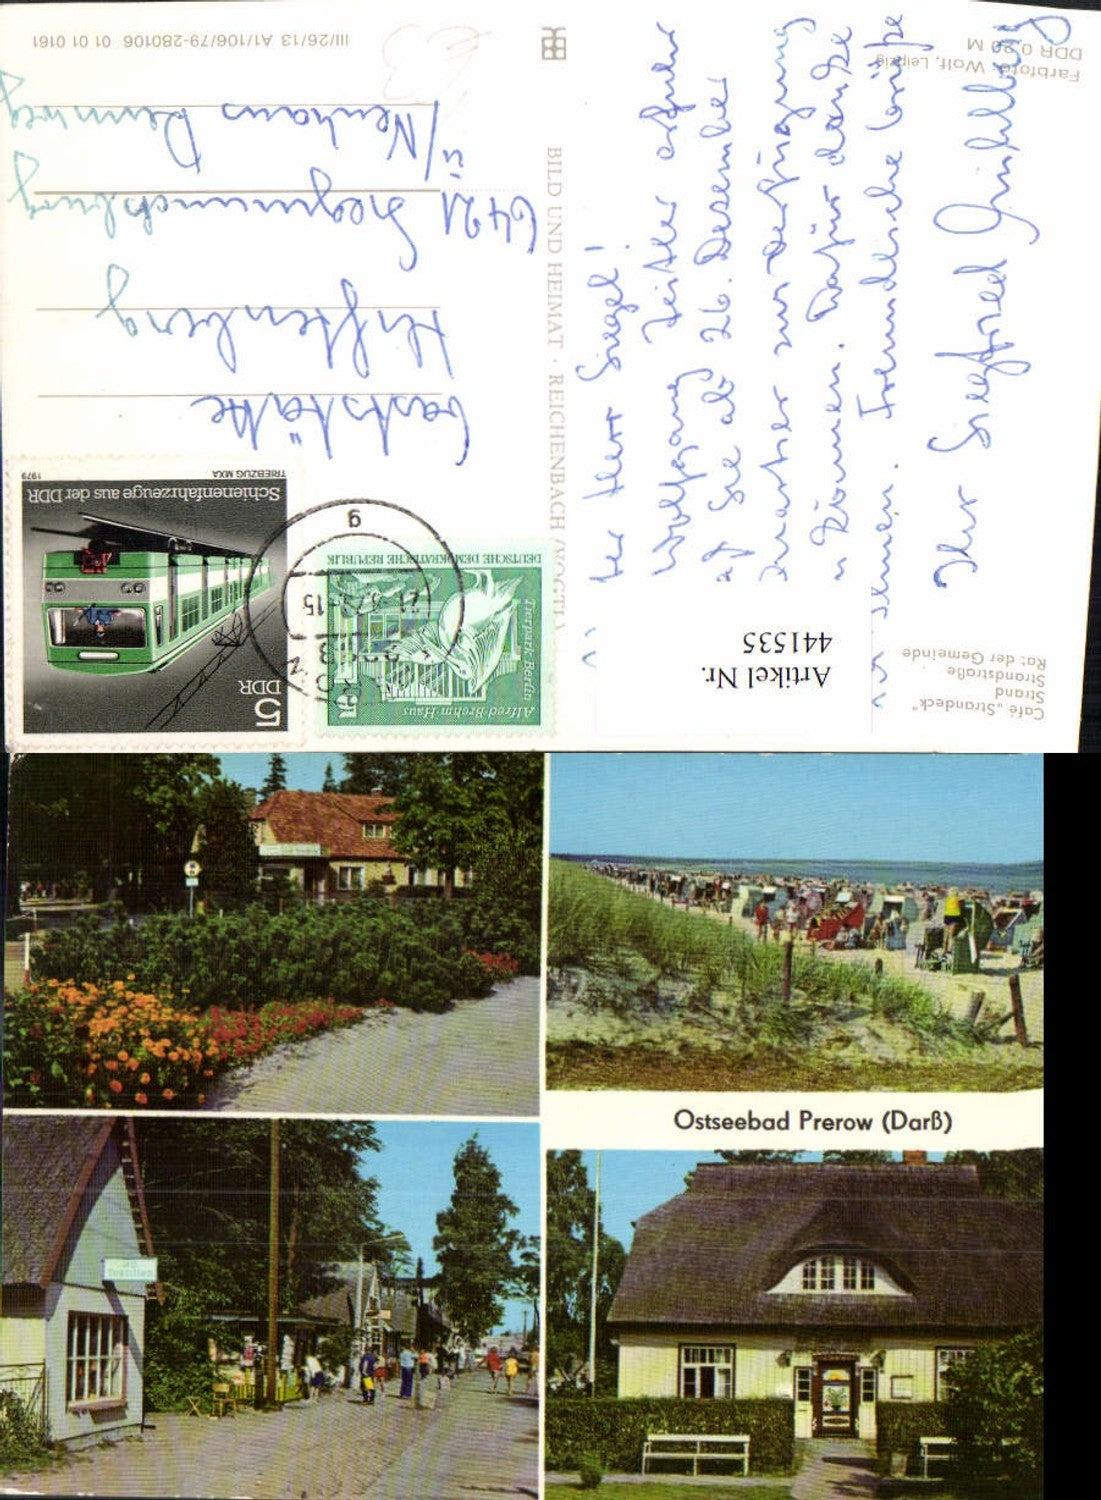 Café „Strandeck“
Strand
Strandstraße
Rat der Gemeinde
Artikel Nr.
441535
Herr Siegel!
Wolfgang Leitler erfuhr
Sie ab 26. Dezember
zur Verfügung
können. Dafür danke
Ihnen. Freundliche Grüße
Ihr Siegfried
Farbfoto: Wolf, Leipzig
DDR 0,20 M
BILD UND HEIMAT · REICHENBACH (VOGTL)
III/26/13 A1/106/79-280106 01 01 0161
Alfred-Brehm-Haus
Tierpark Berlin
5
DEUTSCHE DEMOKRATISCHE REPUBLIK
5
DDR
Schienenfahrzeuge aus der DDR
TRIEBZUG MXA
1979
g
Gaststätte
Hiftenberg
6421 Siegmundsburg
ü/Neuhaus Rennweg
Ostseebad Prerow (Darß)